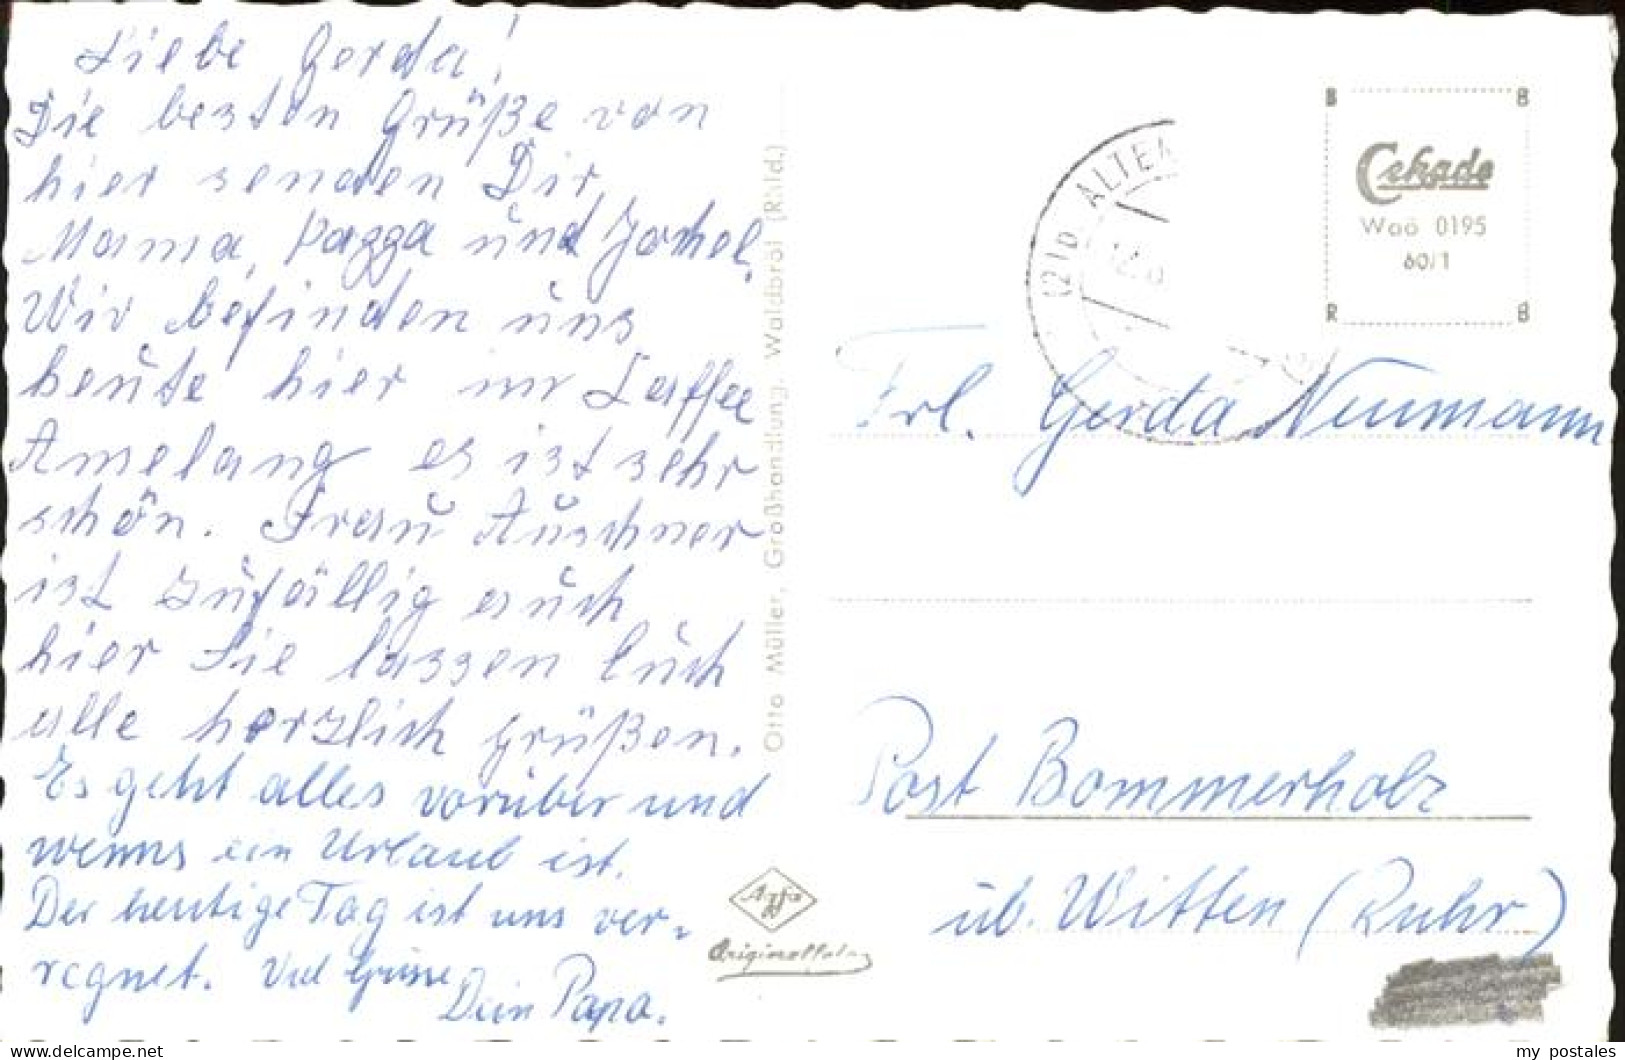 Liebe Gerda!
Die besten Grüße von
hier senden Dir,
Mama, Pappa und
Wir befinden uns
heute hier im Kaffee
Amelang es ist sehr
schön. Frau Auschner
ist zufällig auch
hier Sie lassen Euch
alle herzlich grüßen.
Es geht alles vorüber und
wenns ein Urlaub ist.
Der heutige Tag ist uns ver-
regnet. Viel Grüsse
Dein Papa.
Otto Müller, Großhandlung, Waldbröl (Rhld.)
Agfa
(21b) ALTEN
B B
Cekade
Waö 0195
60/1
R B
Frl. Gerda Neumann
Post Bommerholz
üb. Witten (Ruhr)
my_postales
picclick_placeholder